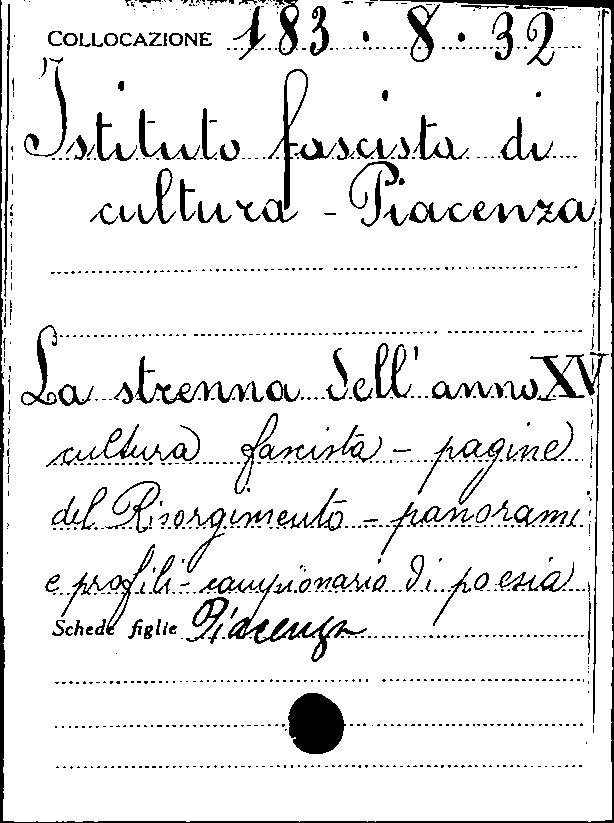 COLLOCAZIONE 183.8.32
Istituto fascista di
cultura - Piacenza
La strenna dell'anno XV
cultura fascista - pagine
del Risorgimento - panorami
e profili - campionario di poesia
Schede figlie Piacenza